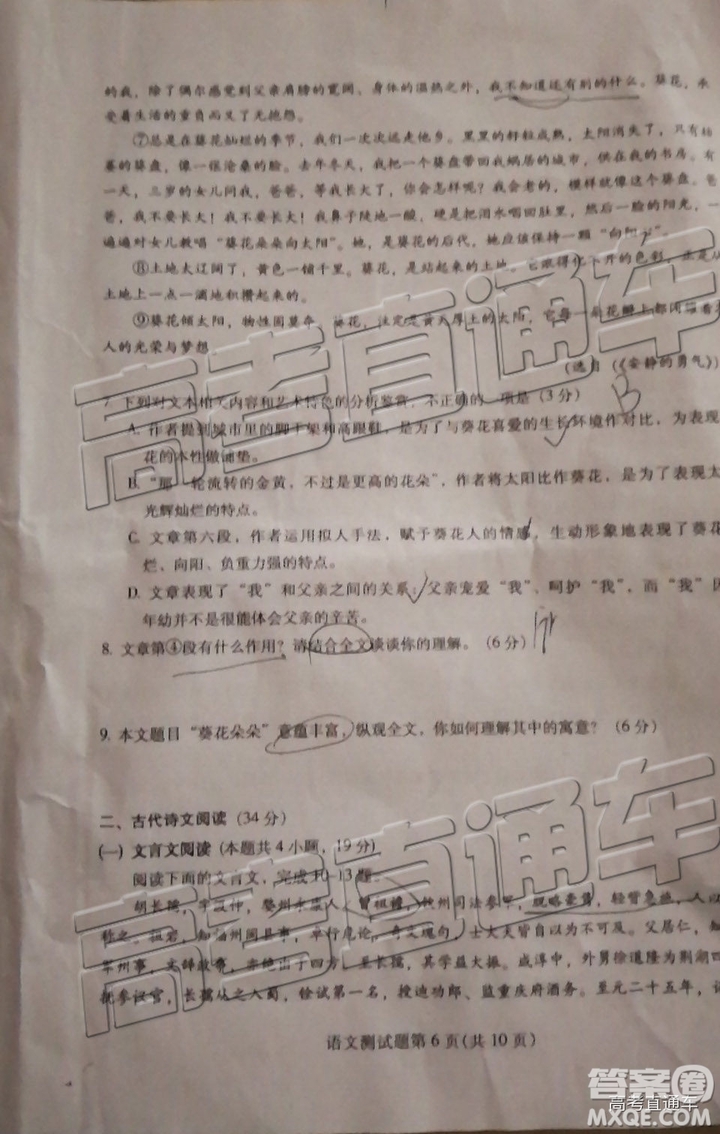 的我，除了偶尔感觉到父亲肩膀的宽阔、身体的温热之外，我不知道还有别的什么。葵花，承
受着生活的重负而又了无抱怨。
⑦总是在葵花灿烂的季节，我们一次次远走他乡。果里的籽粒成熟，太阳消失了，只有枯
萎的葵盘，像一张沧桑的脸。去年冬天，我把一个葵盘带回我蜗居的城市，供在我的书房。有
一天，三岁的女儿问我，爸爸，等我长大了，你会怎样呢？我会老的，模样就像这葵盘。爸爸
我不要长大！我不要长大！我鼻子陡地一酸，硬是把泪水咽回肚里，然后一脸的阳光，一
遍遍对女儿教唱“葵花朵朵向太阳”。她，是葵花的后代，她应该保持一颗“向阳心”。
⑧土地大辽阔了，黄色一铺千里。葵花，是站起来的土地。它跟得化不开的色彩，
土地上一点一滴地积攒起来的。
⑨葵花倾太阳，物性固莫夺。葵花，注定是黄天厚土的太阳，它每一朵花瓣上都闪耀着
人的光荣与梦想
（选自《安静的勇气》）
7. 下列对文本相关内容和艺术特色的分析鉴赏，不正确的一项是（3 分）
B
A. 作者提到城市里的脚手架和高跟鞋，是为了与葵花喜爱的生长环境作对比，为表现
花的本性做铺垫。
B. “那一轮流转的金黄，不过是更高的花朵”，作者将太阳比作葵花，是为了表现
光辉灿烂的特点。
C. 文章第六段，作者运用拟人手法，赋予葵花人的情感，生动形象地表现了葵花
烂、向阳、负重力强的特点。
D. 文章表现了“我”和父亲之间的关系：父亲宠爱“我”、呵护“我”，而“我”因
年幼并不是很能体会父亲的辛苦。
8. 文章第④段有什么作用？请结合全文谈谈你的理解。（6 分）
9. 本文题目“葵花朵朵”意蕴丰富，纵观全文，你如何理解其中的寓意？（6 分）
二、古代诗文阅读（34 分）
(一) 文言文阅读（本题共 4 小题，19 分）
阅读下面的文言文，完成10-13题。
胡长孺，字汲仲，婺州永康人。曾祖樽，徽州司法参军，规略豪赀，轻赀急施，人以
称之。祖岩，知福州闽县事，卓行危论，奇文瑰句，士大夫皆自以为不可及。父居仁，
军州事，文辞政事，亦绝出于四方。至长孺，其学益大振。咸淳中，外舅徐道隆为荆湖四
抚参议官，长孺从之入蜀，铨试第一名，授迪功郎、监重庆府酒务。至元二十五年，诏
语文测试题第 6 页(共 10 页)
高考直通车
高考直通车
答案圈
高考直通车
MXQE.COM